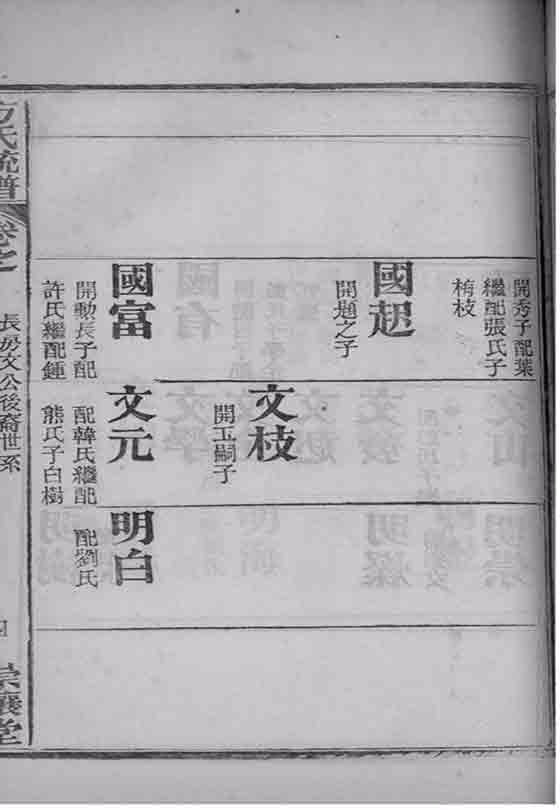 開秀子配葉
繼配張氏子
栯枝
國起
開題之子
國富
開勳長子配
許氏繼配鍾
文枝
開玉嗣子
文元
配韓氏繼配
熊氏子白樹
明白
配劉氏
方氏統譜
卷之
長房文公後裔世系
四